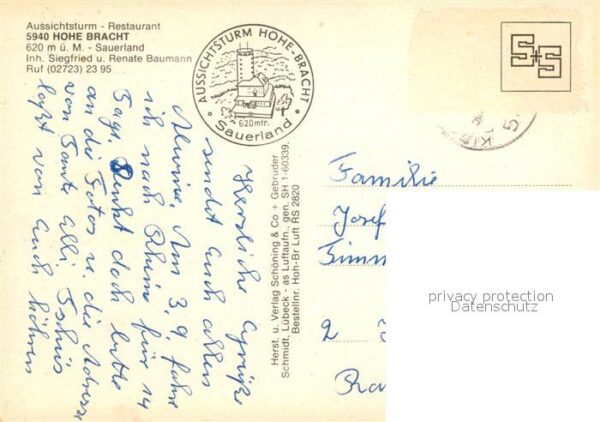 Aussichtsturm - Restaurant
5940 HOHE BRACHT
620 m ü. M. - Sauerland
Inh. Siegfried u. Renate Baumann
Ruf (02723) 23 95
AUSSICHTSTURM HOHE-BRACHT
620 mtr.
Sauerland
S+S
Herzliche Grüße
sendet Euch allen
Alwine. Am 3. 9. fahre
ich nach Rheine für 14
Tage. Denkt doch bitte
an die Fotos u. die Adresse
von Tante Elli. Tschüs
laßt von Euch hören
Herst. u. Verlag Schöning & Co + Gebrüder
Schmidt, Lübeck - as Luftaufn., gen. SH 1-60339,
Bestellnr. Hoh-Br Luft RS 2820
Familie
Josef
2
privacy protection
Datenschutz